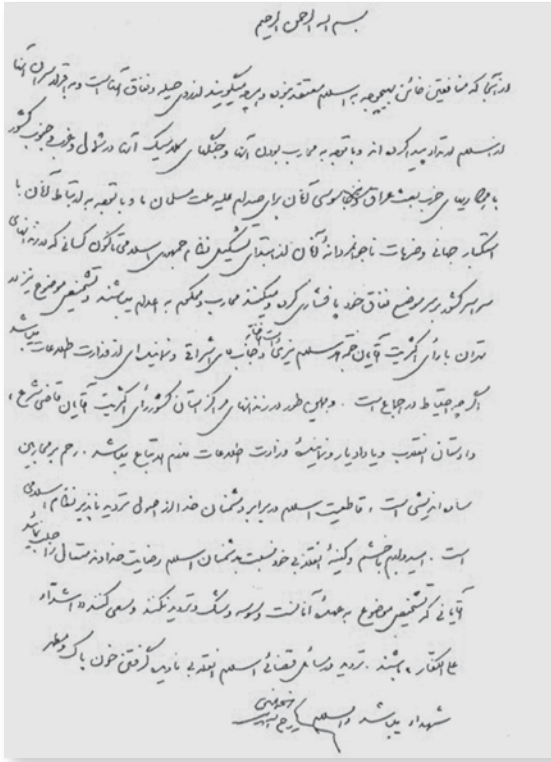 بسم الله الرحمن الرحیم
از آنجا که منافقین خائن بهیچوجه به اسلام معتقد نبوده و هرچه میگویند از روی حیله و نفاق آنهاست و به اقرار سران آنها
از اسلام ارتداد پیدا کرده اند و با توجه به محارب بودن آنها و جنگهای کلاسیک آنها در شمال و غرب و جنوب کشور
با همکاریهای حزب بعث عراق و نیز جاسوسی آنان برای صدام علیه ملت مسلمان ما و با توجه به ارتباط آنان با
استکبار جهانی و ضربات ناجوانمردانهٔ آنان از ابتدای تشکیل نظام جمهوری اسلامی تا کنون کسانی که در زندانهای
سراسر کشور بر سر موضع نفاق خود پافشاری کرده و میکنند محارب و محکوم به اعدام میباشند و تشخیص موضوع نیز در
تهران با رأی اکثریت آقایان حجة الاسلام نیری دامت افاضاته و جناب آقای اشراقی و نماینده ای از وزارت اطلاعات میباشد
اگر چه احتیاط در اجماع است . و همین طور در زندانهای مراکز استان کشور رأی اکثریت آقایان قاضی شرع ،
دادستان انقلاب و یا دادیار و نمایندهٔ وزارت اطلاعات لازم الاتباع میباشد . رحم بر محاربین
ساده اندیشی است ، قاطعیت اسلام در برابر دشمنان خدا از اصول تردید ناپذیر نظام اسلامی
است . امیدوارم با خشم و کینهٔ انقلابی خود نسبت به دشمنان اسلام رضایت خداوند متعال را جلب نمائید
آقایانی که تشخیص موضوع به عهدهٔ آنان است وسوسه و شک و تردید نکنند و سعی کنند « اشداء
علی الکفار » باشند . تردید در مسائل قضائی اسلام انقلابی نادیده گرفتن خون پاک و مطهر
شهداء میباشد والسلام روح الله الموسوی الخمینی